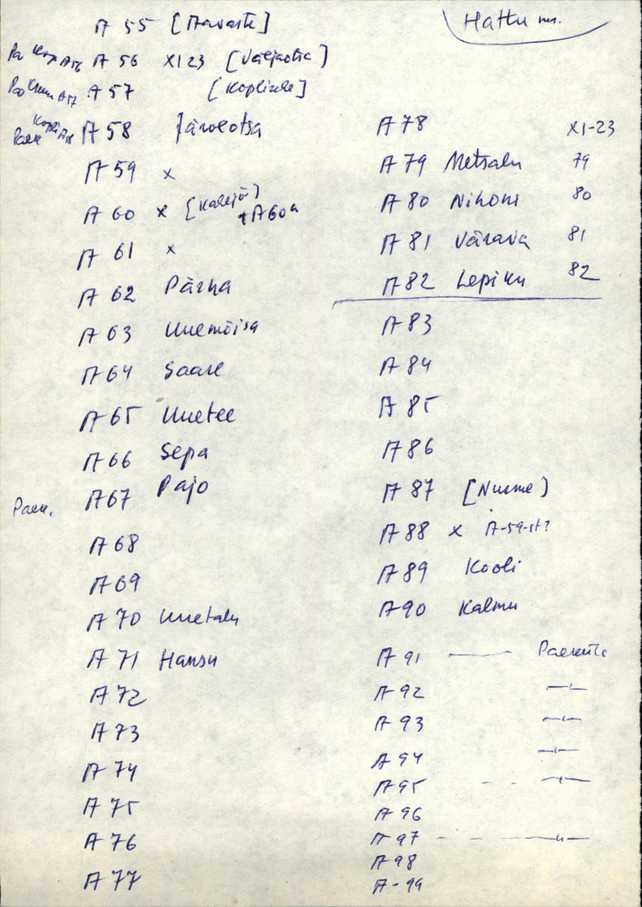 Hattu mn.
A 55 [Aavaste]
A 56 XI 23 [Väljaotsa]
A 57 [Koplivahe]
A 58 Järveotsa
A 59 x
A 60 x [Kalejõe) + A 60a
A 61 x
A 62 Pärna
A 63 Uuemõisa
A 64 Saare
A 65 Uuetee
A 66 Sepa
Paeu. A 67 Pajo
A 68
A 69
A 70 Uuetalu
A 71 Hansu
A 72
A 73
A 74
A 75
A 76
A 77
A 78 XI-23
A 79 Metsalu 79
A 80 Nihoni 80
A 81 Värava 81
A 82 Lepiku 82
A 83
A 84
A 85
A 86
A 87 [Nurme)
A 88 x A-59-st?
A 89 Kooli
A 90 Kalmu
A 91 —
A 92 —"—
A 93 —"—
A 94 —"—
A 95 - - —"—
A 96
A 97 - - - —"—
A 98
A-99